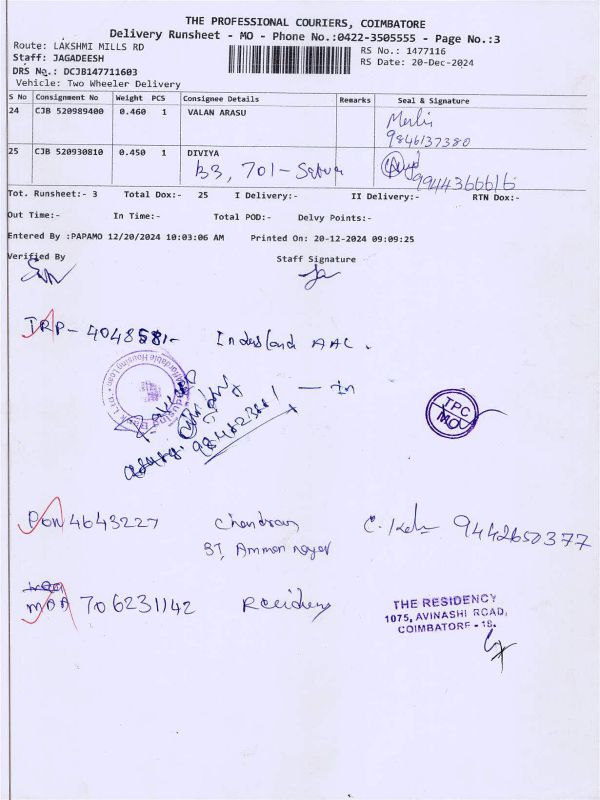 THE PROFESSIONAL COURIERS, COIMBATORE
Delivery Runsheet - MO - Phone No.:0422-3505555 - Page No.:3
Route: LAKSHMI MILLS RD
RS No.: 1477116
Staff: JAGADEESH
RS Date: 20-Dec-2024
DRS No.: DCJB147711603
Vehicle: Two Wheeler Delivery
S No Consignment No Weight PCS Consignee Details Remarks Seal & Signature
24 CJB 520989400 0.460 1 VALAN ARASU
Merlin
9846137380
25 CJB 520930810 0.450 1 DIVIYA
B3, 701-
9944366616
Tot. Runsheet:- 3 Total Dox:- 25 I Delivery:- II Delivery:- RTN Dox:-
Out Time:- In Time:- Total POD:- Delvy Points:-
Entered By :PAPAMO 12/20/2024 10:03:06 AM Printed On: 20-12-2024 09:09:25
Verified By Staff Signature
TRP-4048581-
TPC
MO
PON 4643227 Chandran 9442650377
37, Ammon nager
MAA 706231142 Recidency
THE RESIDENCY
1075, AVINASHI ROAD,
COIMBATORE - 18.